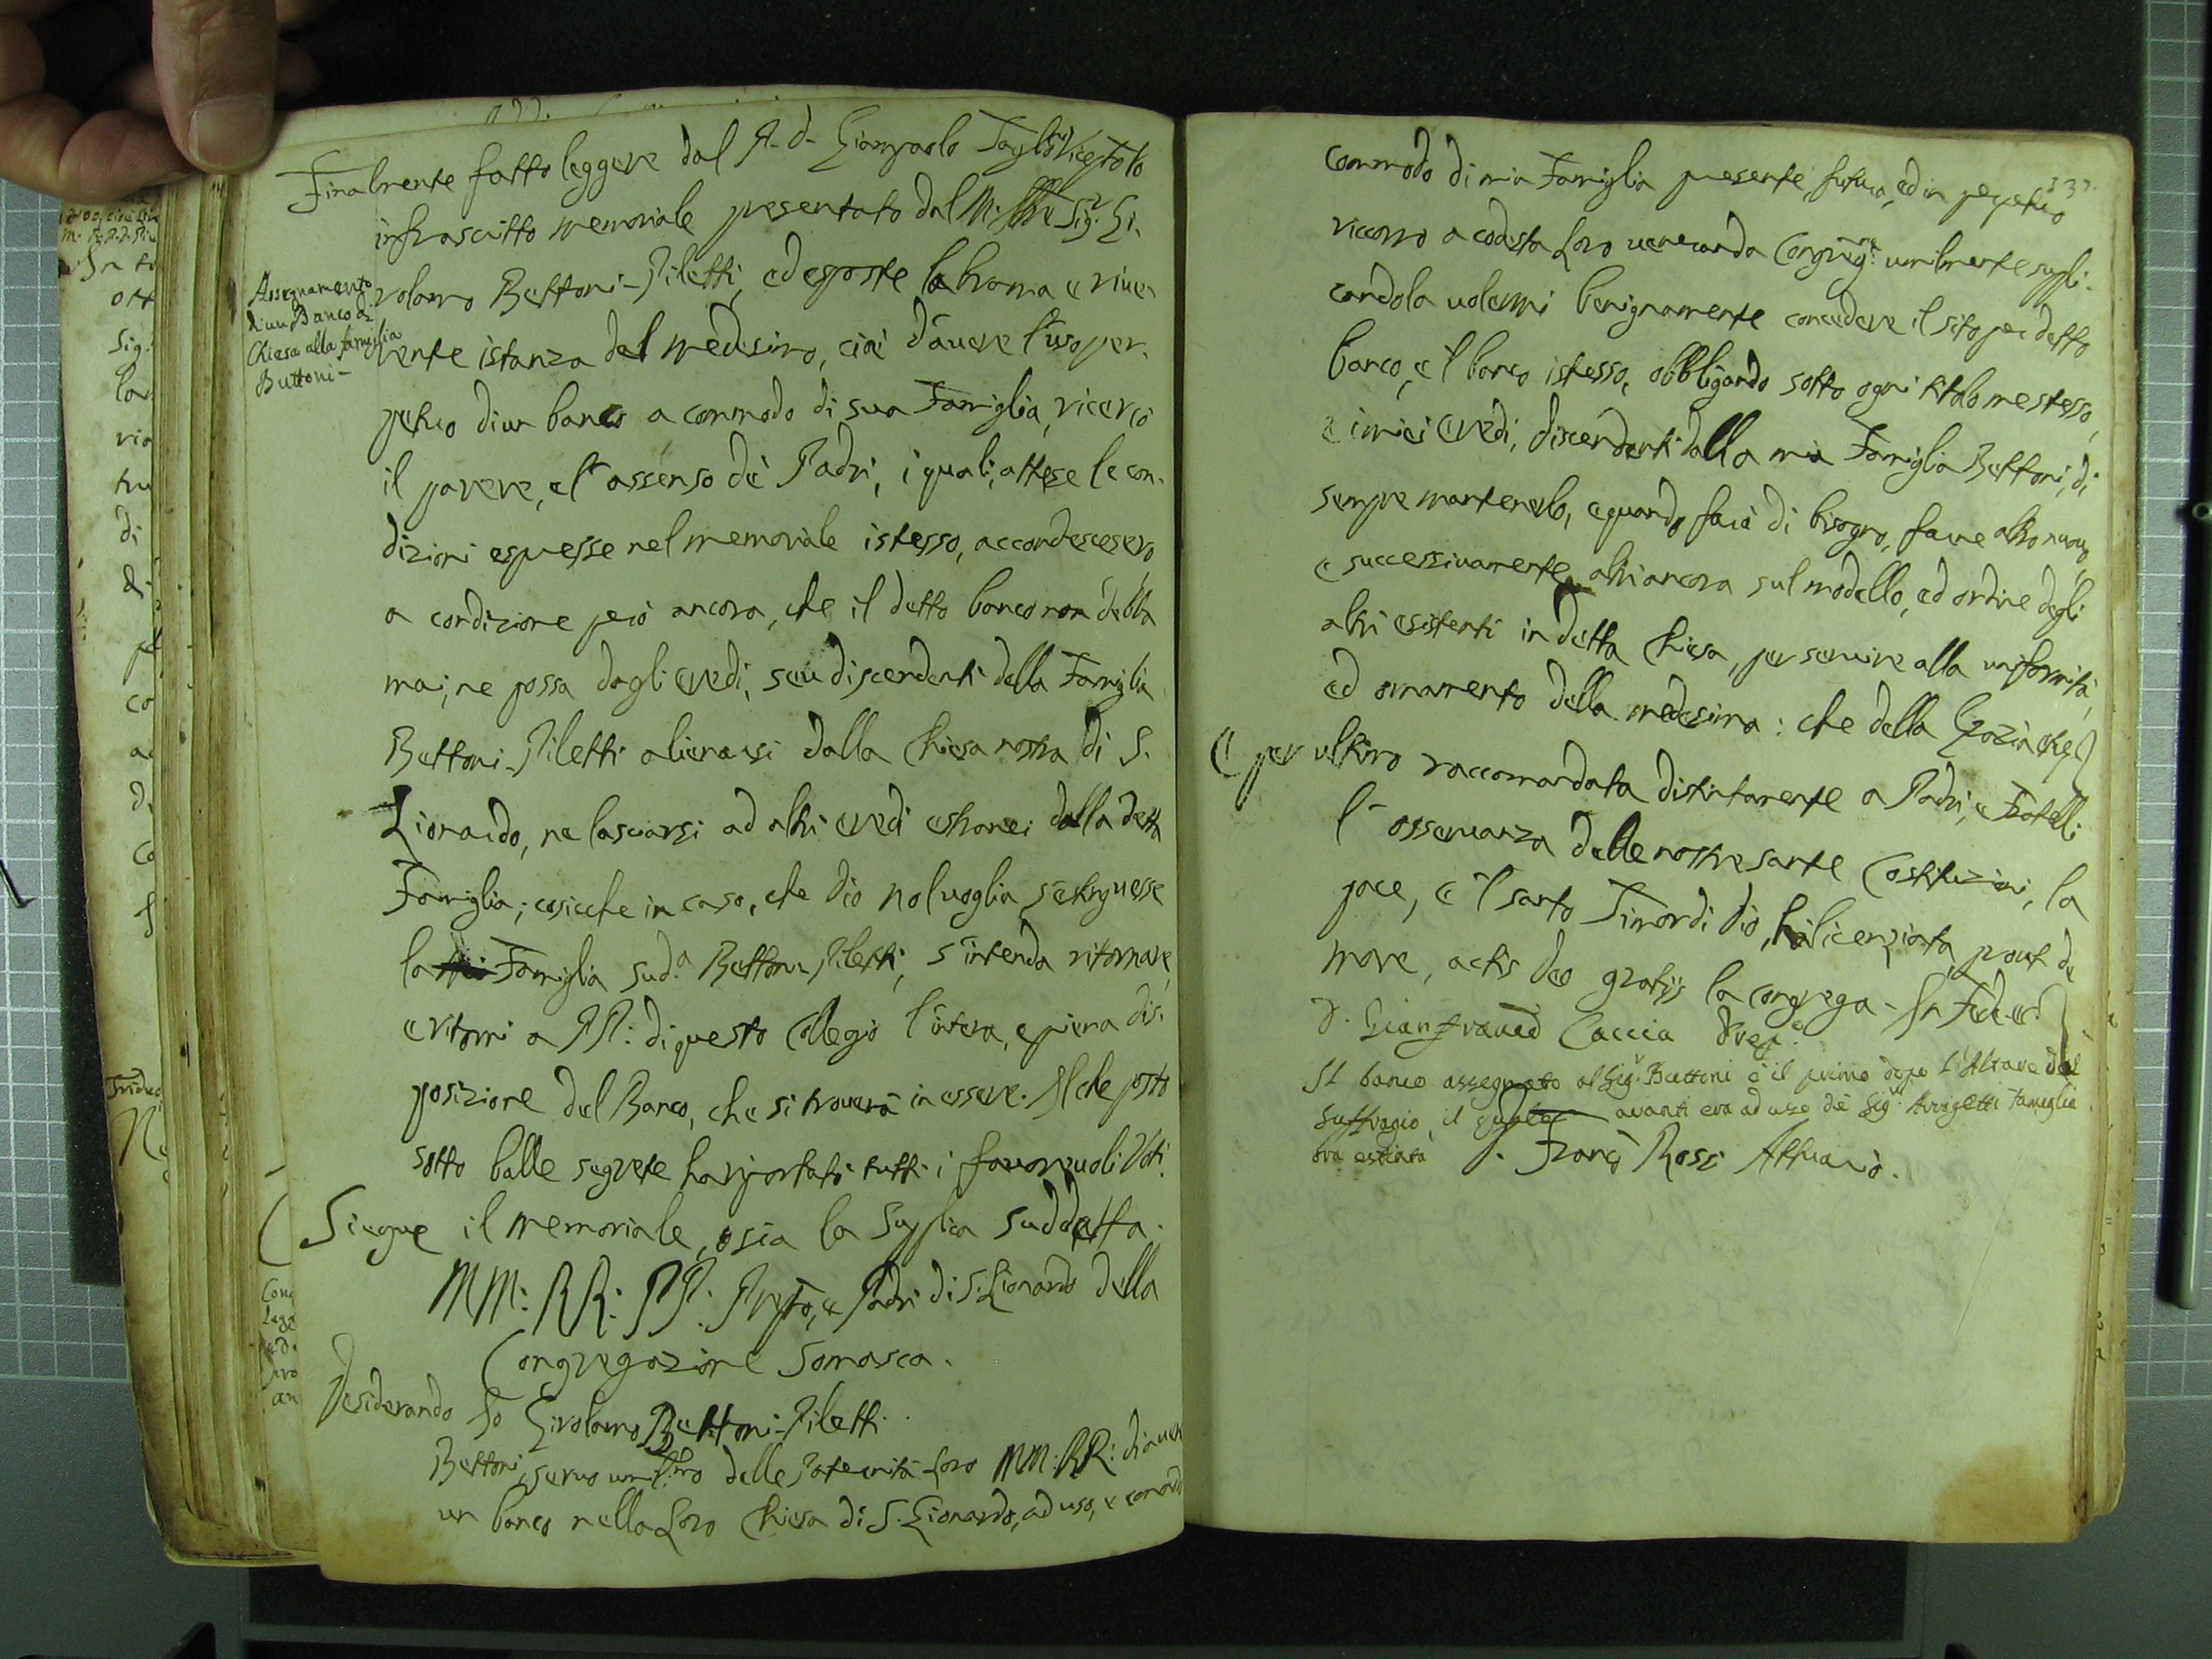 Finalmente fatto leggere dal P. d. Giampaolo Vicep.to lo
infrascritto memoriale presentato dal M. Ill.re Sig.r Gi-
rolamo Bettoni-Piletti, ed esposte la brama e rive-
rente istanza del medesimo, cioè d'auere l'uso per-
petuo di un banco a commodo di sua Famiglia, ricercò
il parere, e l'assenso de' Padri, i quali, attese le con-
dizioni espresse nel memoriale istesso, accondescesero
a condizione però ancora, che il detto banco non debba
mai, ne possa dagli eredi, seu discendenti della Famiglia
Bettoni-Piletti alienarsi dalla Chiesa nostra di S.
Lionardo, ne lasciarsi ad altri eredi estranei dalla detta
Famiglia; cosicche in caso, che Dio nol uoglia, s'estinguesse
la Famiglia sud.a Bettoni Piletti, s'intenda ritornare,
e ritorni a PP: di questo Collegio l'intera, e piena dis-
posizione del Banco, che si trouerà in essere. Il che posto
sotto balle segrete ha riportati tutti i fauoreuoli Voti.
Siegue il memoriale, osia la Supplica suddetta.
MM: RR: PP. Prep.to, e Padri di S. Lionardo della
Congregazione Somasca.
Desiderando Io Girolamo Bettoni-Piletti
Bettoni, seruo umil.mo delle Paternità Loro MM: RR: di auer
un banco nella Loro Chiesa di S. Lionardo, ad uso, e comodo
Assegnamento
d'un Banco di
Chiesa alla famiglia
Buttoni-
137.
commodo di mia Famiglia presente, futura, ed in perpetuo
ricorro a codesta Loro ueneranda Congreg.ne umilmente suppli-
candola uolermi benignamente concedere il sito per detto
banco, e 'l banco istesso, obbligando sotto ogni titolo me stesso,
e i miei eredi, discendenti dalla mia Famiglia Bettoni, di
sempre mantenerlo, e quando farà di bisogno, farne altro nuouo,
e successiuamente altri ancora sul modello, ed ordine degli
altri esistenti in detta Chiesa, per seruire alla uniformità,
ed ornamento della medesima: che della Grazia che
E per ultimo raccomandata distintamente a Padri, e Fratelli
l'osseruanza delle nostre sante Costituzioni, la
pace, e 'l santo Timor di Dio, ha licenziata, prout de
more, actis Deo gratijs la congrega - In Fede
D. Gianfranc.o Caccia Prep.o
Il banco assegnato al Sig.r Buttoni è il primo dopo l'Altare del
Suffragio, il quale avanti era ad uso de' Sig.ri Arrigetti famiglia
ora estinta D. Franc.o Rossi Attuario.